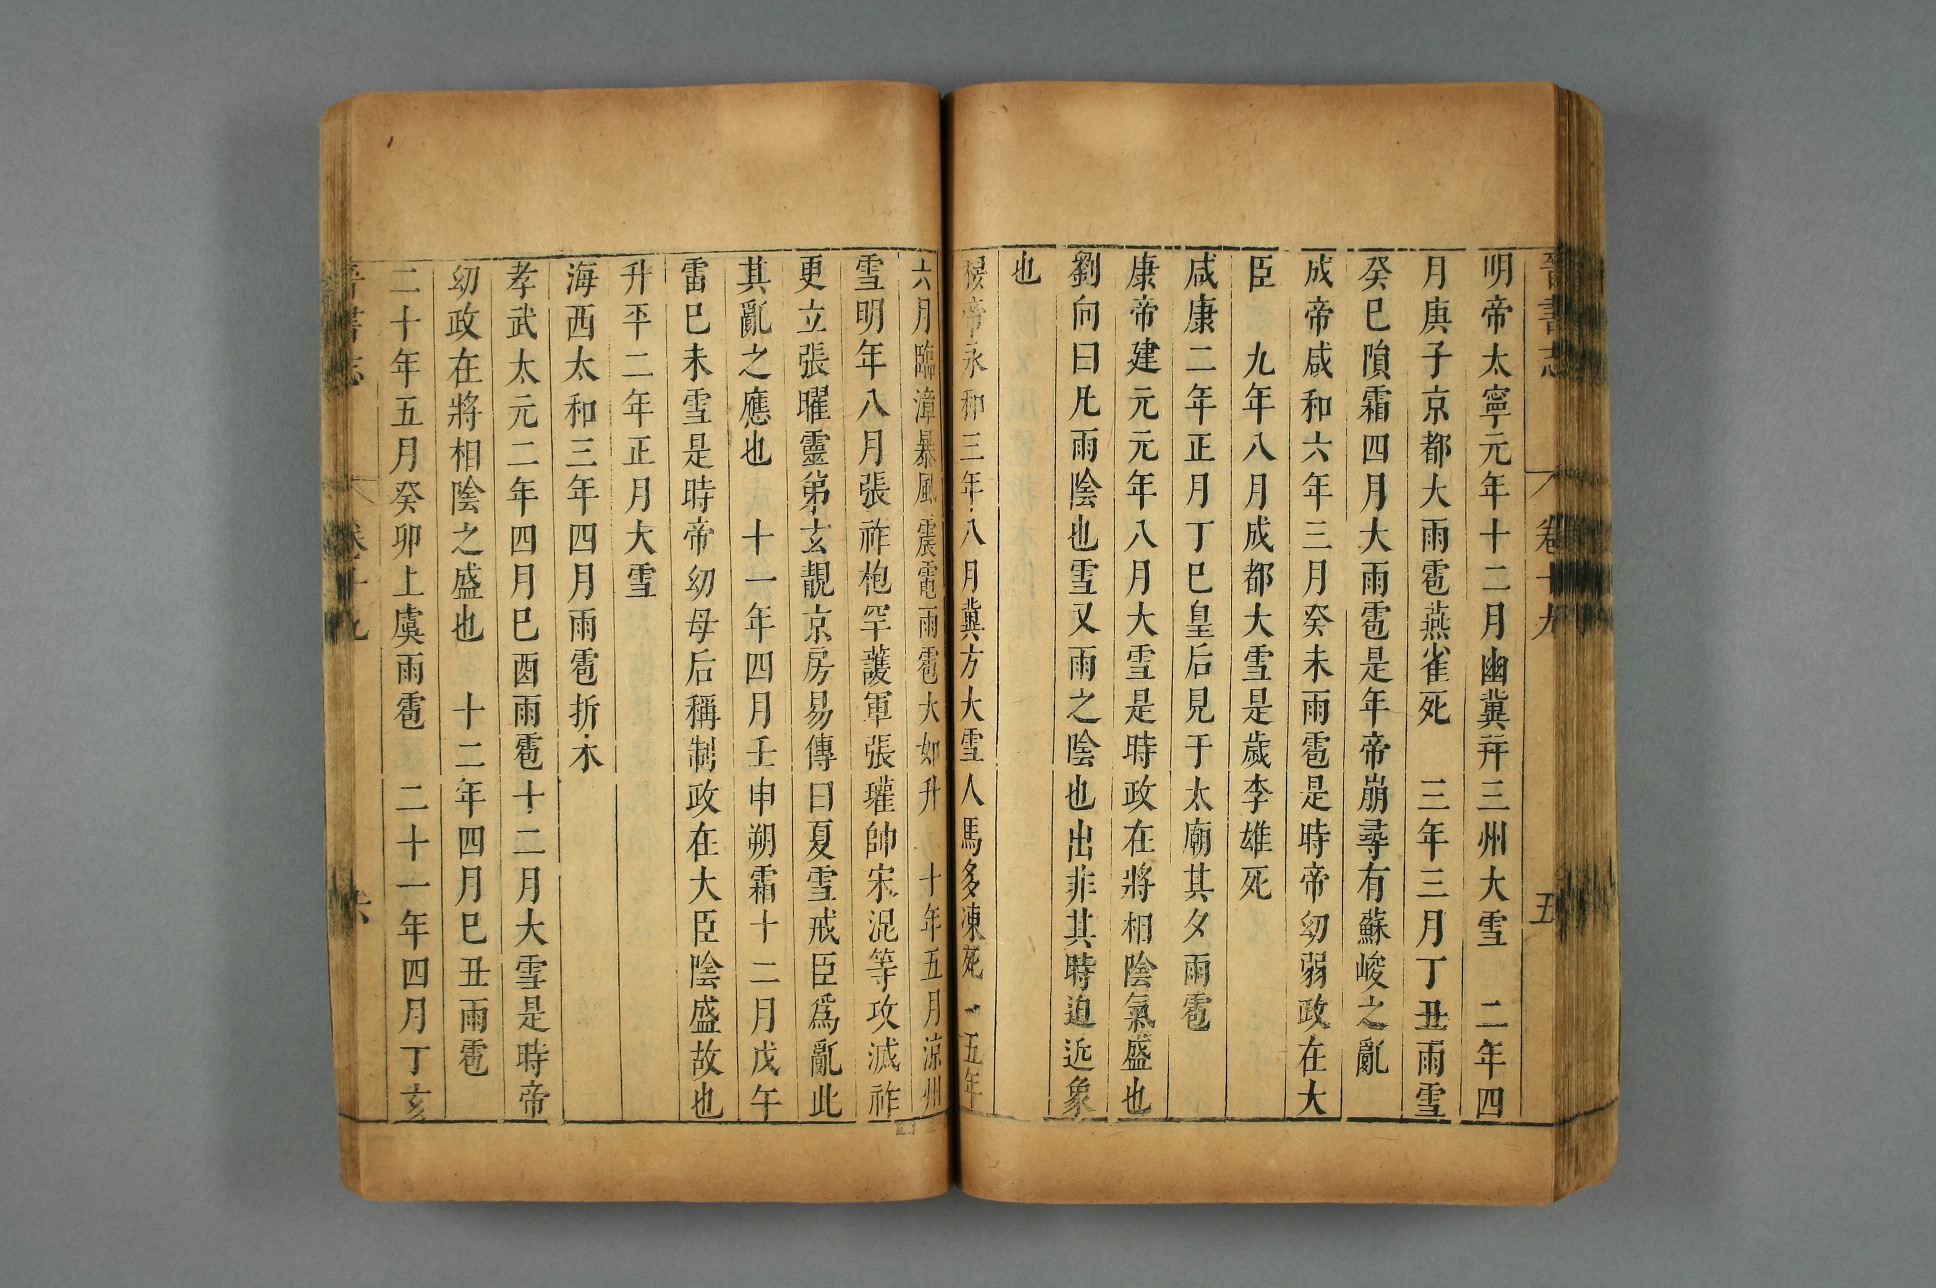 晉書志 卷十九 五
明帝太寧元年十二月幽冀幷三州大雪 二年四
月庚子京都大雨雹燕雀死 三年三月丁丑雨雪
癸巳隕霜四月大雨雹是年帝崩尋有蘇峻之亂
成帝咸和六年三月癸未雨雹是時帝幼弱政在大
臣 九年八月成都大雪是歲李雄死
咸康二年正月丁巳皇后見于太廟其夕雨雹
康帝建元元年八月大雪是時政在將相陰氣盛也
劉向曰凡雨陰也雪又雨之陰也出非其時迫近象
也
穆帝永和三年八月冀方大雪人馬多凍死 五年
六月臨漳暴風震電雨雹大如升 十年五月涼州
雪明年八月張祚枹罕護軍張瓘帥宋混等攻滅祚
更立張曜靈弟玄靚京房易傳曰夏雪戒臣爲亂此
其亂之應也 十一年四月壬申朔霜十二月戊午
雷巳未雪是時帝幼母后稱制政在大臣陰盛故也
升平二年正月大雪
海西太和三年四月雨雹折木
孝武太元二年四月巳酉雨雹十二月大雪是時帝
幼政在將相陰之盛也 十二年四月巳丑雨雹
二十年五月癸卯上虞雨雹 二十一年四月丁亥
晉書志 卷十九 六